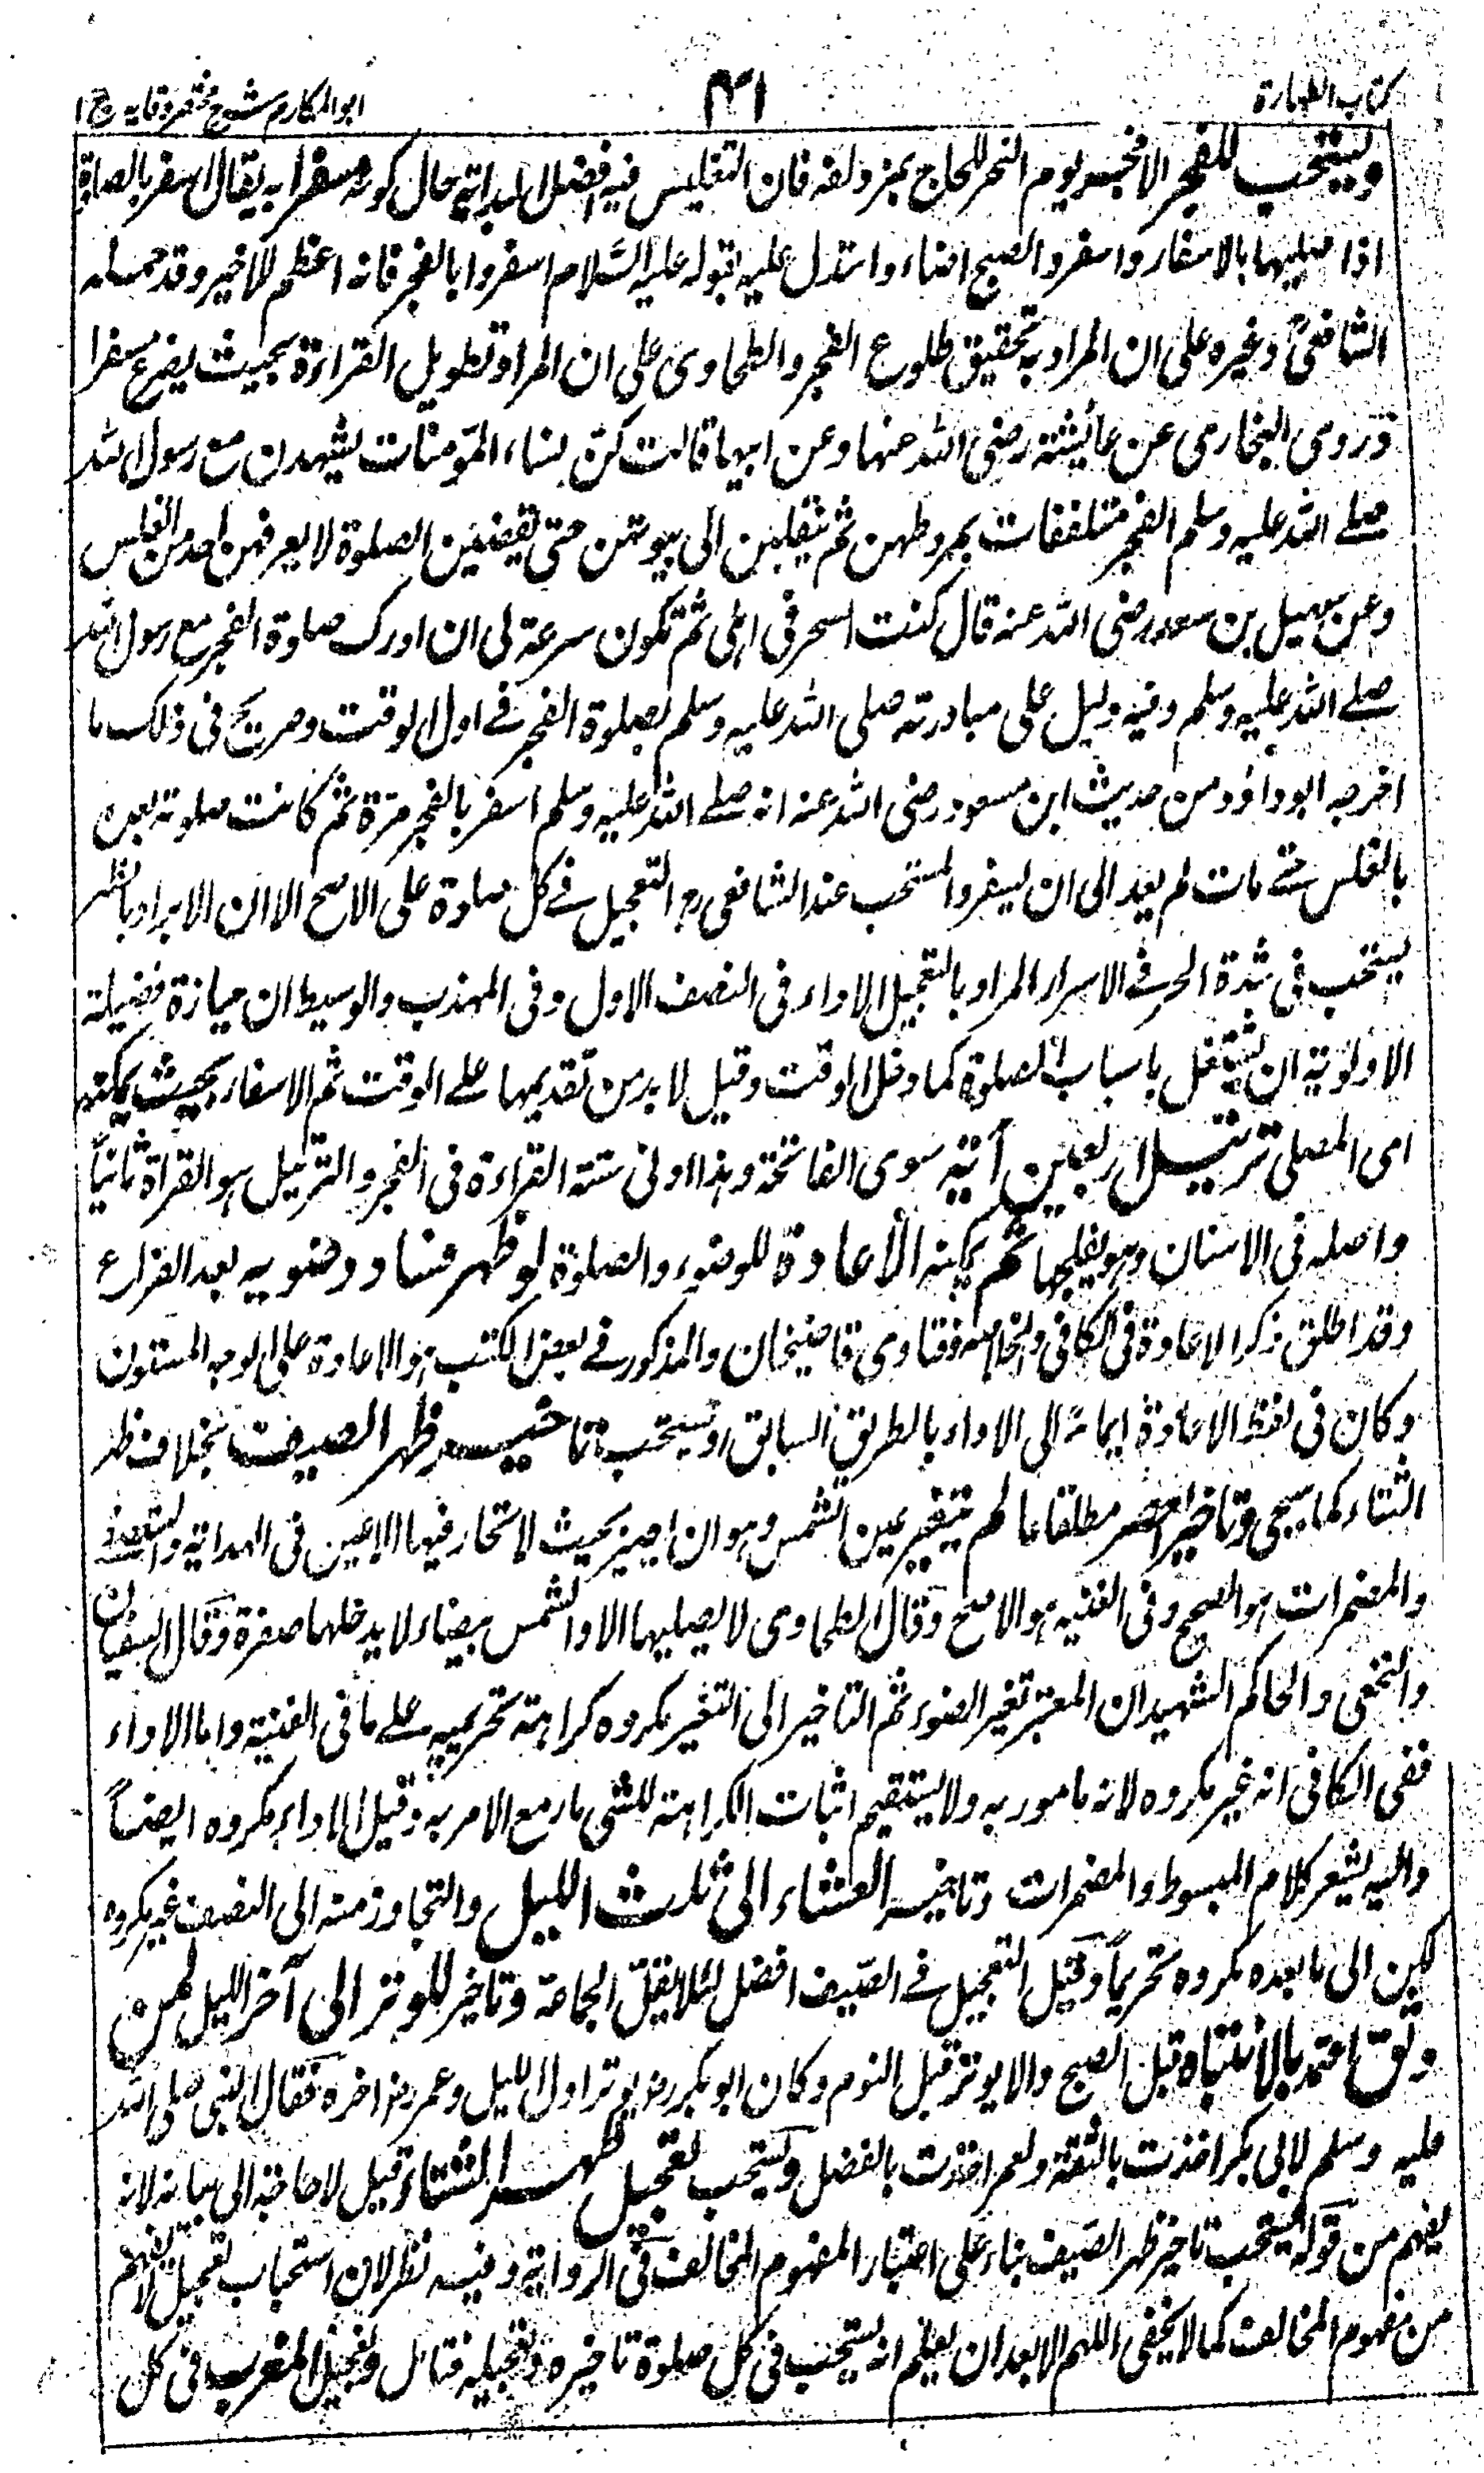 كتاب الطهارة
١٣١
ابو المكارم شرح مختصر وقايه ج ١
ويستحب للفجر الا فجر يوم النحر للحاج بمزدلفة فان التغليس فيه افضل البداية حال كونه مسفرا به يقال اسفر بالصلوة
اذا صليها بالاسفار واسفر والصبح اضاء واستدل عليه بقوله عليه السلام اسفروا بالفجر فانه اعظم للاجر وقد حمله
الشافعي وغيره على ان المراد به تحقيق طلوع الفجر والطحاوى على ان المراد تطويل القراءة بحيث يفرغ مسفرا
وروى البخارى عن عائشة رضى الله عنها وعن ابيها قالت كن نساء المؤمنات يشهدن مع رسول الله
صلے الله عليه وسلم الفجر متلففات بمروطهن ثم ينقلبن الى بيوتهن حتى يقضين الصلوة لا يعرفهن احد من الغلس
وعن سهيل بن سعد رضى الله عنه قال كنت اسحر فى اهلى ثم تكون سرعة لى ان ادرك صلوة الفجر مع رسول الله
صلے الله عليه وسلم وفيه دليل على مبادرته صلى الله عليه وسلم لصلوة الفجر فے اول الوقت وصريح فى ذلك ما
اخرجه ابو داؤد من حديث ابن مسعود رضى الله عنه انه صلے الله عليه وسلم اسفر بالفجر مرة ثم كانت صلوته بعده
بالغلس حتے مات لم يعد الى ان يسفر والمستحب عند الشافعى رح التعجيل فے كل صلوة على الاصح الا ان الابراد بالظهر
يستحب فى شدة الحر فے الاسرار المراد بالتعجيل الاداء فى النصف الاول وفى المهذب والوسيط ان حيازة فضيلة
الاولوية ان يشتغل باسباب الصلوة كما دخل الوقت وقيل لا بد من تقديمها علے الوقت ثم الاسفار بحيث يمكنه
اى المصلى ترتيل اربعين آية سوى الفاتحة وهذا اولى سنة القراءة فى الفجر والترتيل هو القراة ثانياً
واصله فى الاسنان وهو تفليجها ثم يمكنه الاعادة للوضوء والصلوة لو ظهر فساد وضوءيه بعد الفراغ
وقد اطلق ذكر الاعادة فى الكافى والخلاصة وفتاوى قاضيخان والمذكور فے بعض الكتب هو الاعادة على الوجه المسنون
وكان فى لفظ الاعادة ايماء الى الاداء بالطريق السابق ويستحب تاخير ظهر الصيف بخلاف ظهر
الشتاء كما سيجى وتاخير العصر مطلقا ما لم يتغير عين الشمس وهو ان يصير بحيث لا تحار فيها الاعين فى الهداية والمستصفى
والمضمرات هو الصحيح وفى الغنية هو الاصح وقال الطحاوى لا يصليها الا والشمس بيضاء لا يدخلها صفرة وقال السفيان
والنخعى والحاكم الشهيد ان المعتبر تغير الضوء ثم التاخير الى التغير مكروه كراهة تحريمية علے ما فى الغنية واما الاداء
ففى الكافى انه غير مكروه لانه مامور به ولا يستقيم اثبات الكراهة للشى مع الامر به وقيل الاداء مكروه ايضاً
واليه يشعر كلام المبسوط والمضمرات وتاخير العشاء الى ثلث الليل والتجاوز منه الى النصف غير مكروه
لكن الى ما بعده مكروه تحريماً وقيل التعجيل فے الصيف افضل لئلا يقل الجماعة وتاخير للوتر الى آخر الليل لمن
وثق اعتمد بالانتباه قبل الصبح والا يوتر قبل النوم وكان ابو بكر رض يوتر اول الليل وعمر رض اخره فقال النبى صلى الله
عليه وسلم لابى بكر اخذت بالثقة ولعمر اخذت بالفضل ويستحب تعجيل ظهر الشتاء قيل لا حاجة الى بيانه لانه
يفهم من قوله يستحب تاخير ظهر الصيف بناء على اعتبار المفهوم المخالف فى الرواية وفيه نظر لان استحباب تعجيل لا يفهم
من مفهوم المخالف كما لا يخفى اللهم الا بعد ان يعلم انه يستحب فى كل صلوة تاخيره وتعجيله فتامل وتعجيل المغرب فى كل